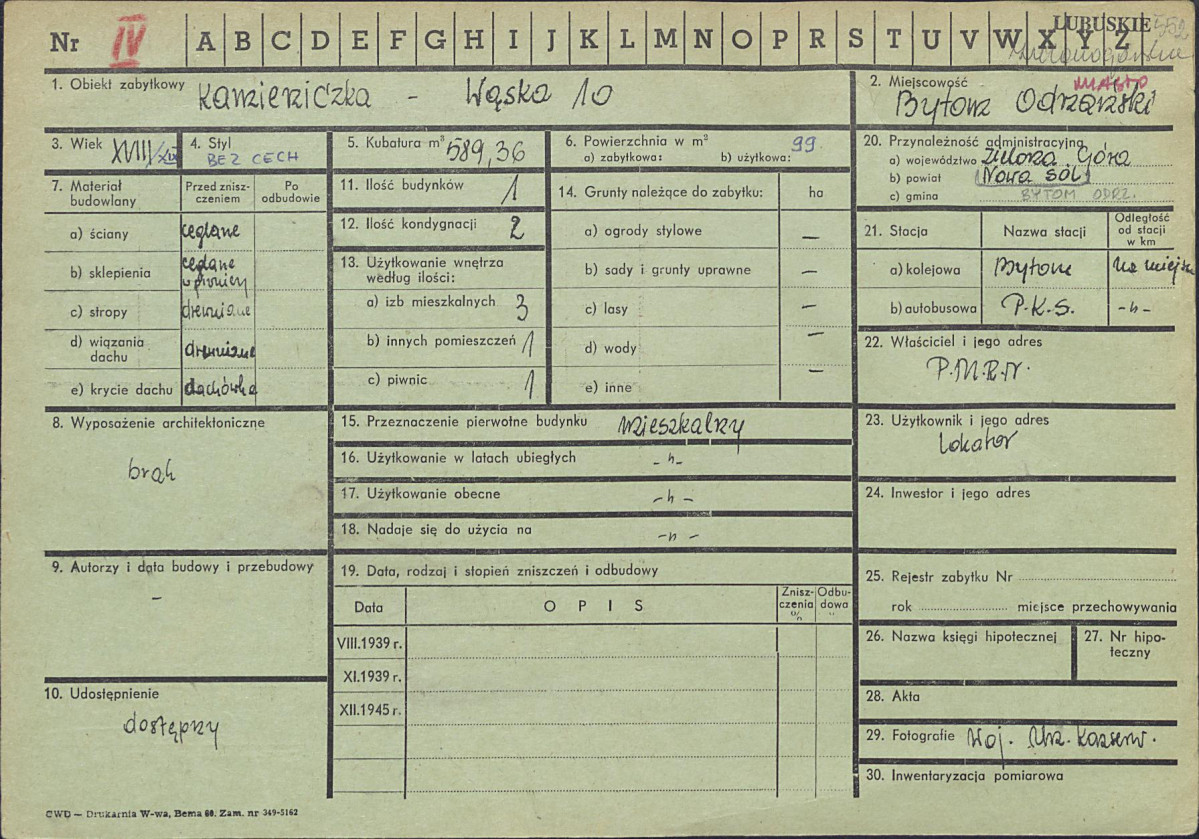 Nr IV A B C D E F G H I J K L M N O P R S T U V W X Y Z
LUBUSKIE
552
1. Obiekt zabytkowy Kamieniczka - Wąska 10
2. Miejscowość MIASTO
Bytom Odrzański
3. Wiek XVIII/XIX
4. Styl
BEZ CECH
5. Kubatura m³ 589,36
6. Powierzchnia w m² 99
a) zabytkowa: b) użytkowa:
20. Przynależność administracyjna
a) województwo Zielona Góra
b) powiat Nowa Sól
c) gmina BYTOM ODRZ.
7. Materiał budowlany
Przed zniszczeniem
Po odbudowie
a) ściany ceglane
b) sklepienia ceglane w piwnicy
c) stropy drewniane
d) wiązania dachu drewniane
e) krycie dachu dachówka
11. Ilość budynków 1
12. Ilość kondygnacji 2
13. Użytkowanie wnętrza
według ilości:
a) izb mieszkalnych 3
b) innych pomieszczeń 1
c) piwnic 1
14. Grunty należące do zabytku: ha
a) ogrody stylowe –
b) sady i grunty uprawne –
c) lasy –
d) wody –
e) inne –
21. Stacja Nazwa stacji Odległość od stacji w km
a) kolejowa Bytom na miejscu
b) autobusowa P.K.S. -"-
22. Właściciel i jego adres
P.M.R.N.
8. Wyposażenie architektoniczne
brak
15. Przeznaczenie pierwotne budynku mieszkalny
16. Użytkowanie w latach ubiegłych -"-
17. Użytkowanie obecne -"-
18. Nadaje się do użycia na -"-
23. Użytkownik i jego adres
Lokator
24. Inwestor i jego adres
9. Autorzy i data budowy i przebudowy
–
19. Data, rodzaj i stopień zniszczeń i odbudowy
Data OPIS Zniszczenia % Odbudowa "
VIII.1939 r.
XI.1939 r.
XII.1945 r.
25. Rejestr zabytku Nr
rok miejsce przechowywania
26. Nazwa księgi hipotecznej
27. Nr hipoteczny
10. Udostępnienie
dostępny
28. Akta
29. Fotografie Woj. Urz. Konserw.
30. Inwentaryzacja pomiarowa
CWD — Drukarnia W-wa, Bema 60. Zam. nr 349-5162